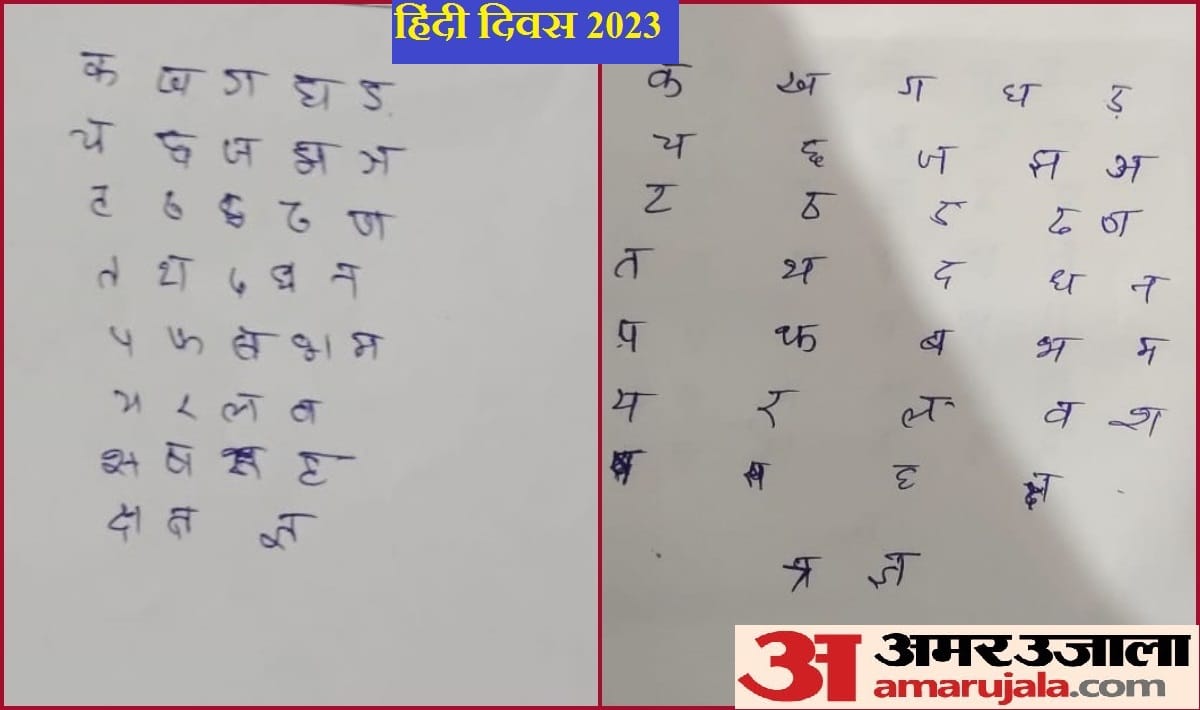 हिंदी दिवस 2023
क ख ग घ ड.
च छ ज झ ञ
ट ठ ड ढ ण
त थ द ध न
प फ ब भ म
य र ल व
श ष स ह
क्ष त्र ज्ञ
क ख ग घ ड़
च छ ज झ अ
ट ठ ड ढ ण
त थ द ध न
प फ ब भ म
य र ल व श
ष स ह क्ष
त्र ज्ञ
अ अमर उजाला
amarujala.com